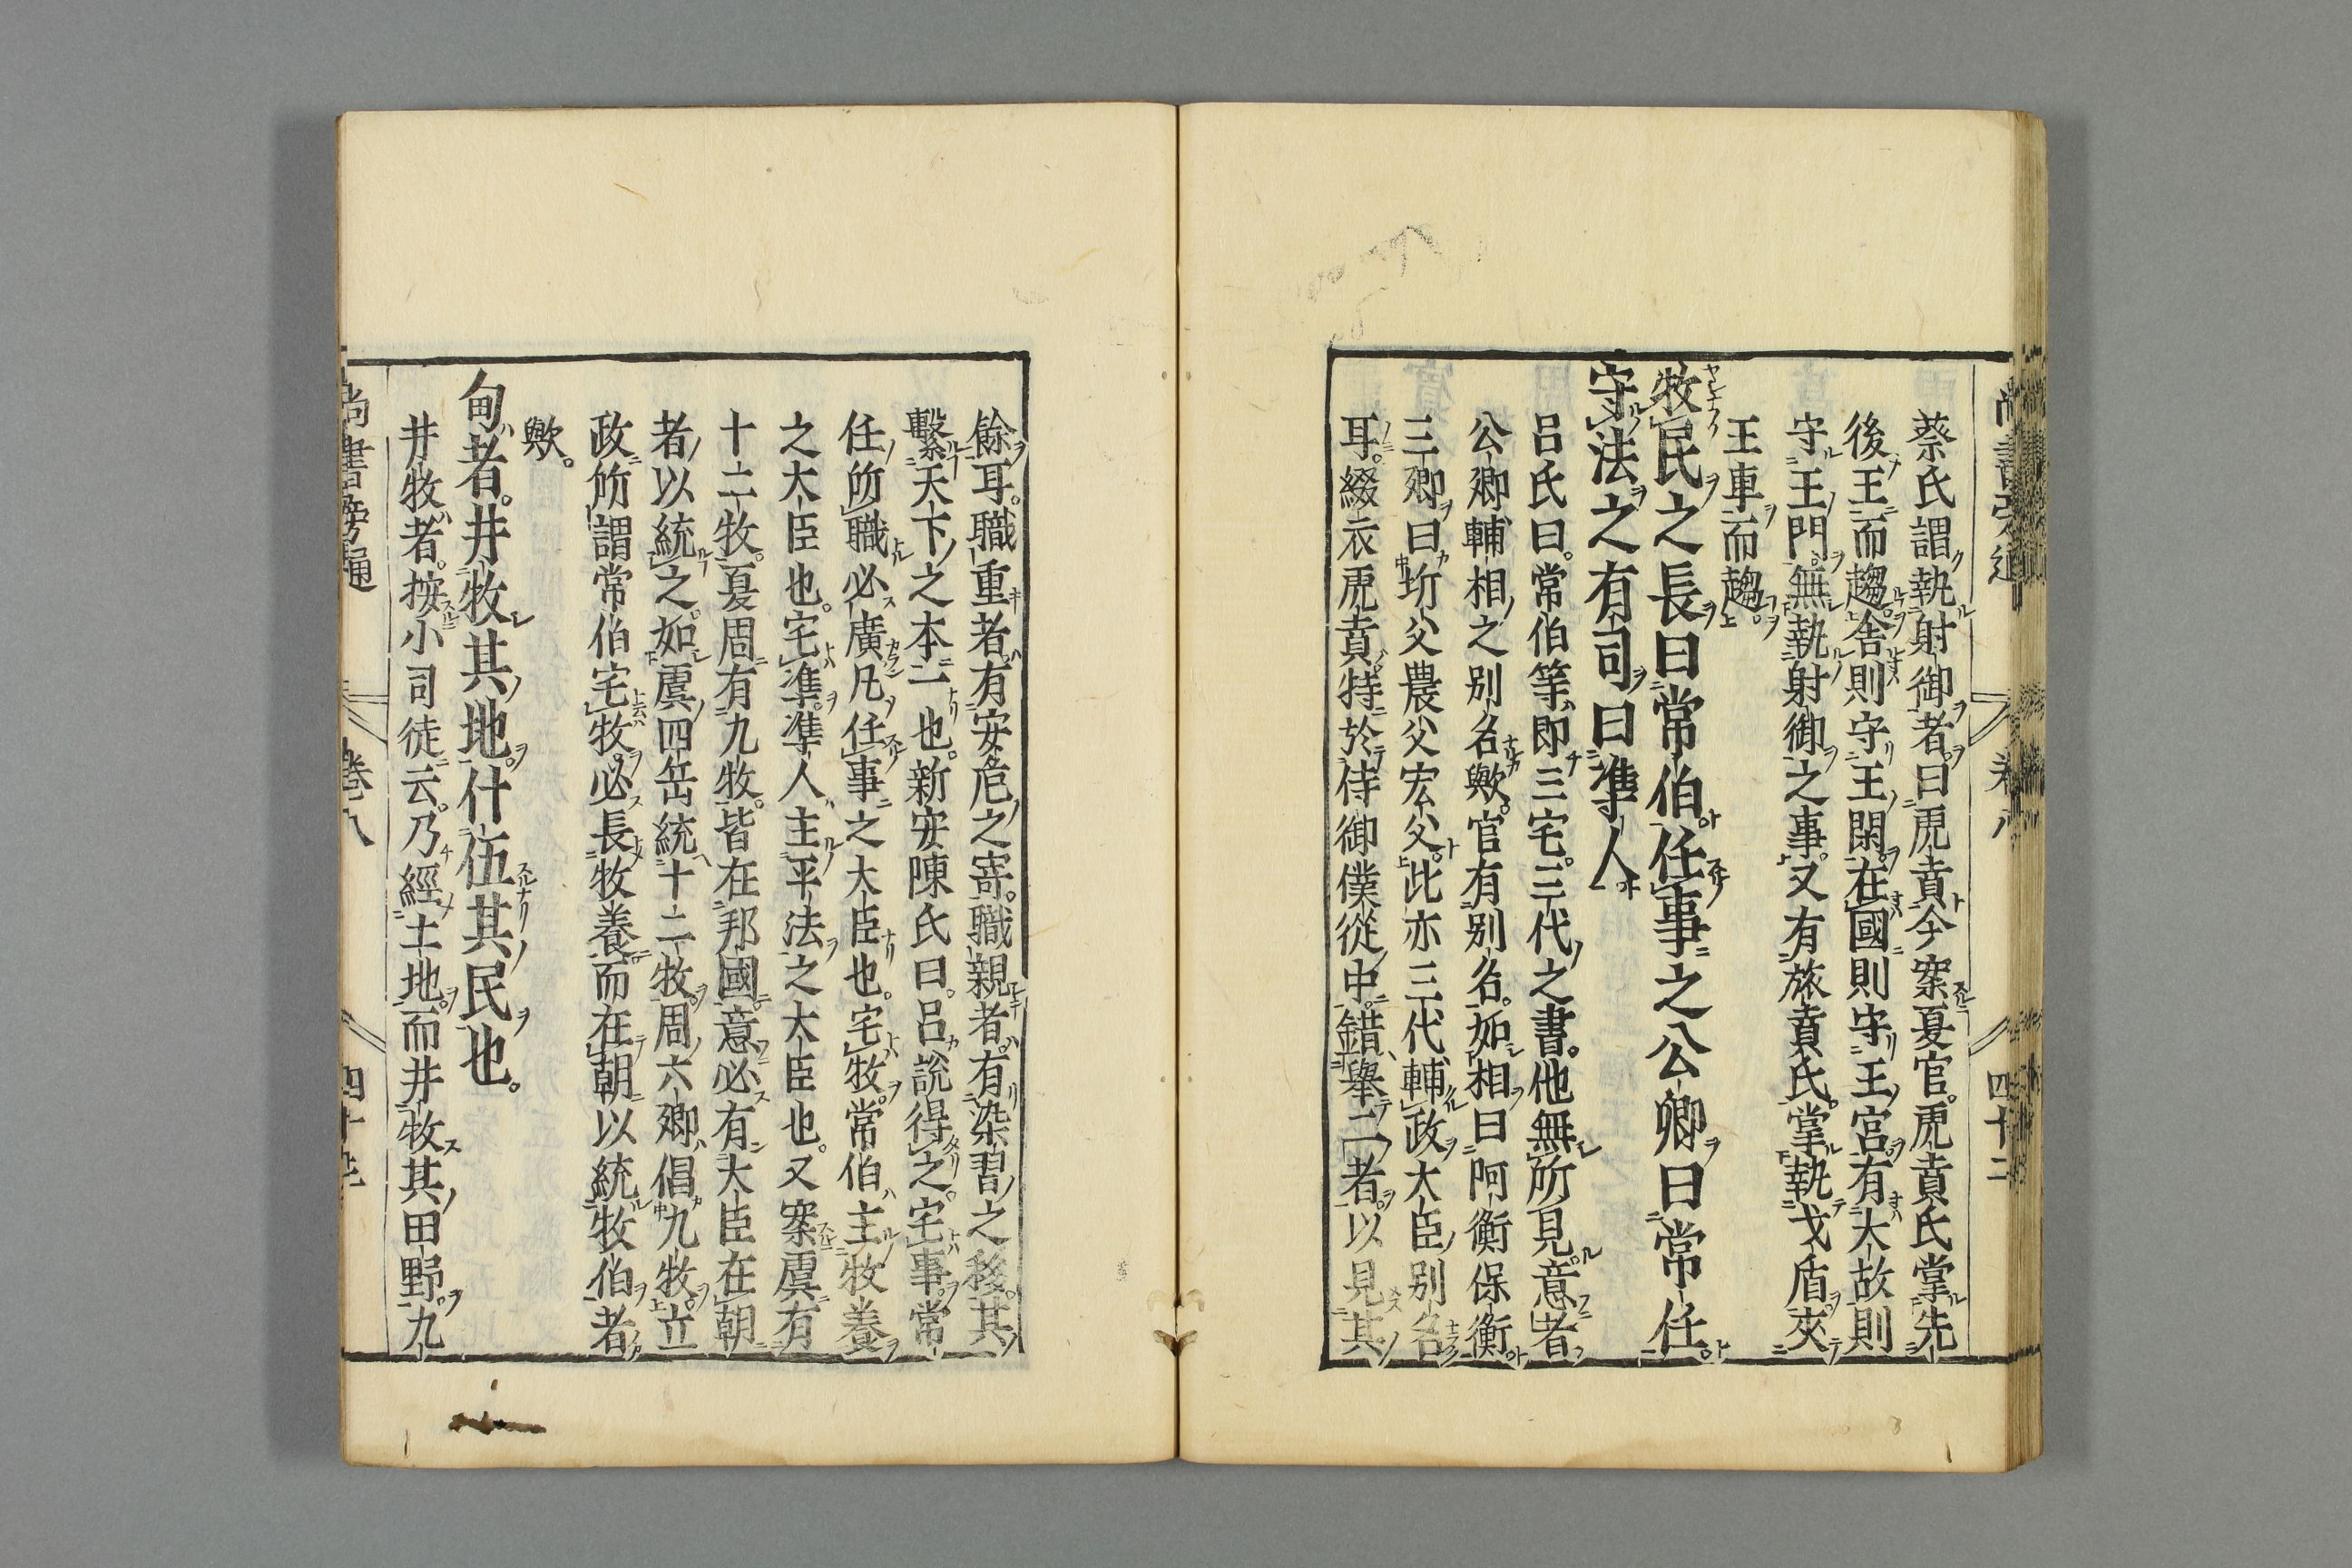 尚書旁通 卷八 四十二
蔡氏謂執射御者曰虎賁今案夏官虎賁氏掌先
後王而趨舍則守王閑在國則守王宮有大故則
守王門無執射御之事又有旅賁氏掌執戈盾夾
王車而趨
牧民之長曰常伯任事之公卿曰常任
守法之有司曰準人
呂氏曰常伯等即三宅三代之書他無所見意者
公卿輔相之別名歟官有別名如相曰阿衡保衡
三卿曰圻父農父宏父此亦三代輔政大臣別名
耳綴衣虎賁特於侍御僕從中錯舉二者以見其
餘耳職重者有安危之寄職親者有染習之移其
繫天下之本一也新安陳氏曰呂說得之宅事常
任所職必廣凡任事之大臣也宅牧常伯主牧養
之大臣也宅準準人主平法之大臣也又案虞有
十二牧夏周有九牧皆在邦國意必有大臣在朝
者以統之如虞四岳統十二牧周六卿倡九牧立
政所謂常伯宅牧必長牧養而在朝以統牧伯者
歟
甸者井牧其地什伍其民也
井牧者按小司徒云乃經土地而井牧其田野九
尚書旁通 卷八